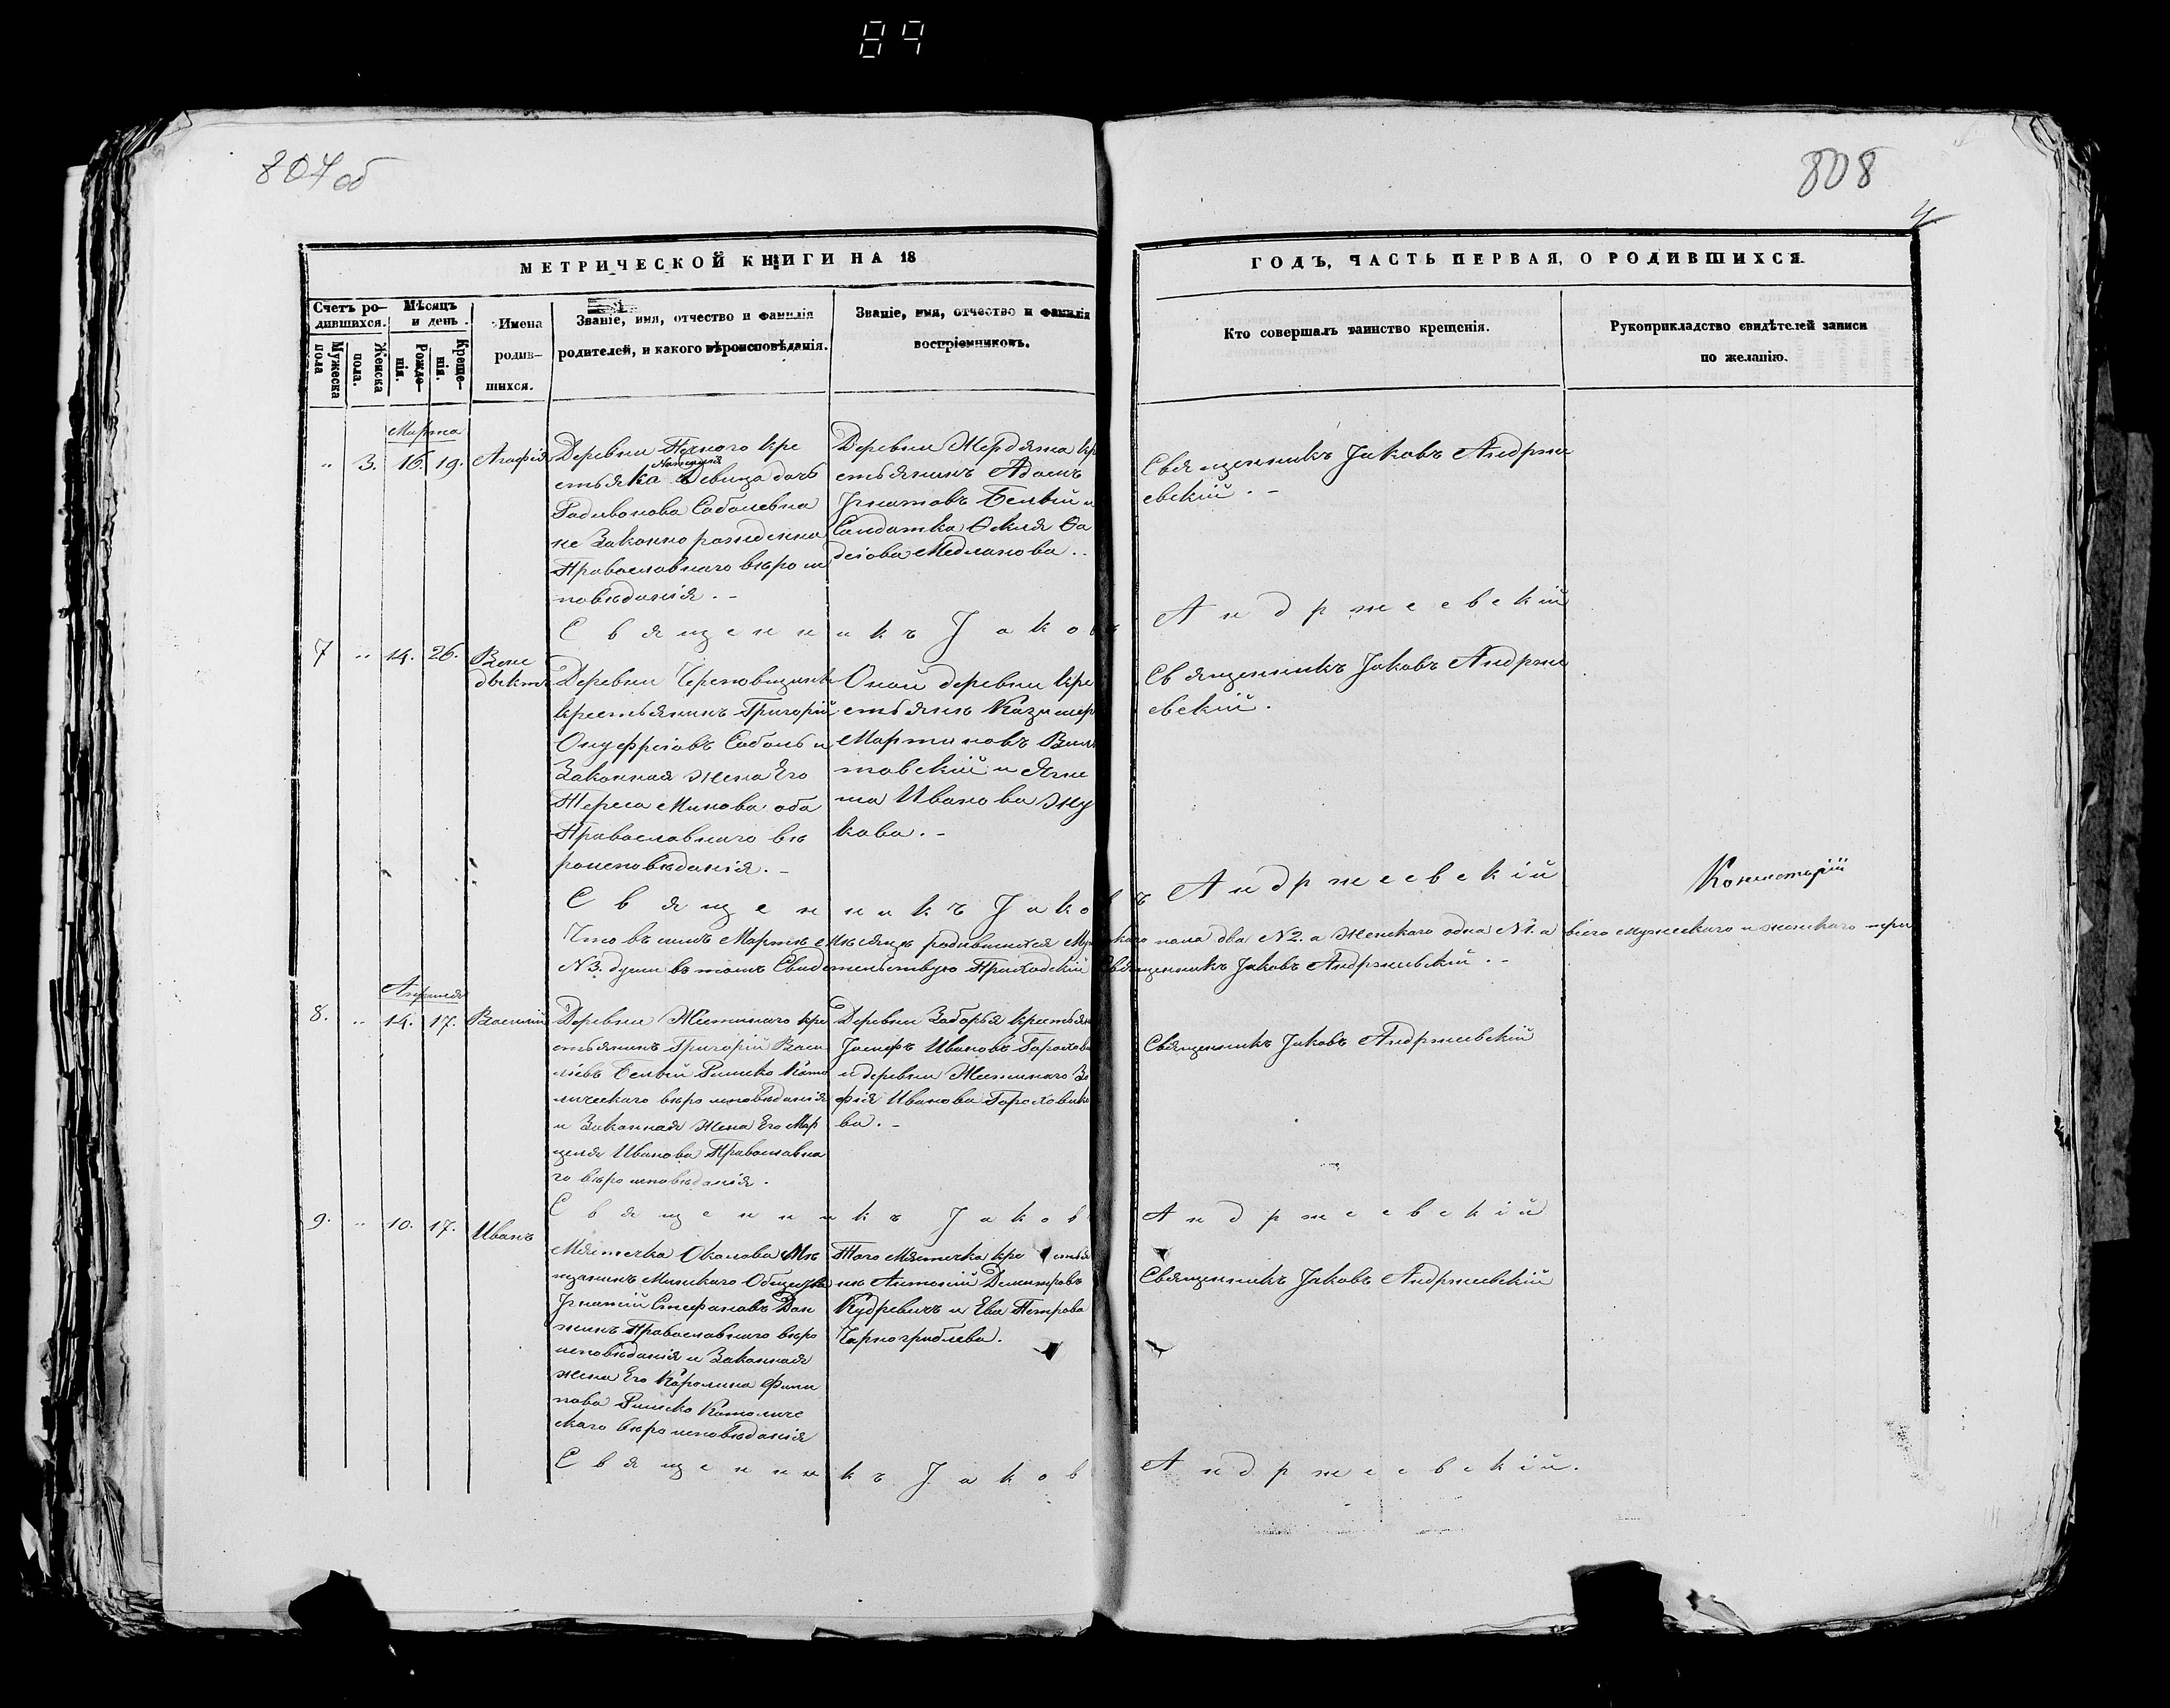 89
807 об
808
4
МЕТРИЧЕСКОЙ КНИГИ НА 18
ГОДЪ, ЧАСТЬ ПЕРВАЯ, О РОДИВШИХСЯ.
Счетъ ро-
дившихся.
Мужеска
пола
Женска
пола.
Мѣсяцъ
и день.
Рожде-
нія.
Креще-
нія.
Имена
родив-
шихся.
Званіе, имя, отчество и фамилія
родителей, и какого вѣроисповѣданія.
Званіе, имя, отчество и фамилія
воспріемниковъ.
Кто совершалъ таинство крещенія.
Рукоприкладство свидѣтелей записи
по желанію.
Марта
" 3. 16. 19. Агафія
Деревни кре
стьянка Наталія Девица дочь
Родивонова Соболевна
не Законно рожденна
Православнаго вѣроис
повѣданія. -
Деревни Жердяжа кр
естьянинъ Адамъ
Игнатовъ Белый и
Солдатка Ѳекля Ѳа
деіова Медланова..
Священникъ Іаковъ Андрже
евскій. -
Священникъ Іаковъ Андржеевскій
7 " 14. 26. Вене
диктъ
Деревни
крестьянинъ Григорій
Онуфріовъ Соболь и
Законная жена Его
Тереса Минова оба
Православнаго вѣ
роисповѣданія. -
Оной деревни кре
стьянъ Казимер
Мартиновъ
товскій и Агне
та Иванова Жу
кова. -
Священникъ Іаковъ Андрже
евскій.
Священникъ Іаковъ Андржеевскій
Консисторіи
Что въ семъ Мартѣ мѣсяцѣ родившихся Мужскаго пола два №2. а Женскаго одна №1. а всего мужескаго и женскаго три
№3. души въ томъ Свидетельствую Приходскій Священникъ Іаковъ Андржеевскій. -
Апреля
8. " 14. 17. Василій
Деревни Жестинаго кре
стьянинъ Григорій Васи
ліевъ Белый Римско Като
лическаго вѣроисповѣданія
и Законная жена Его Мар
целя Иванова Православна
го вѣроисповѣданія.
Деревни Заборья крестьян
Іосифъ Ивановъ
и деревни Жестинаго Зо
фія Иванова
ва. -
Священникъ Іаковъ Андржеевскій
Священникъ Іаковъ Андржеевскій
9. " 10. 17. Иванъ
Мястечка Околова Мѣ
щанинъ Минскаго Общества
Игнатій Стефановъ
Православнаго вѣро
исповѣданія и Законная
жена Его Каролина Фили
пова Римско Католиче
скаго вѣроисповѣданія
Того Мястечка кре стья
нѣ Антоній Демитровъ
Кудревичъ и Ева Петрова
Чарногриблева.
Священникъ Іаковъ Андржеевскій
Священникъ Іаковъ Андржеевскій.